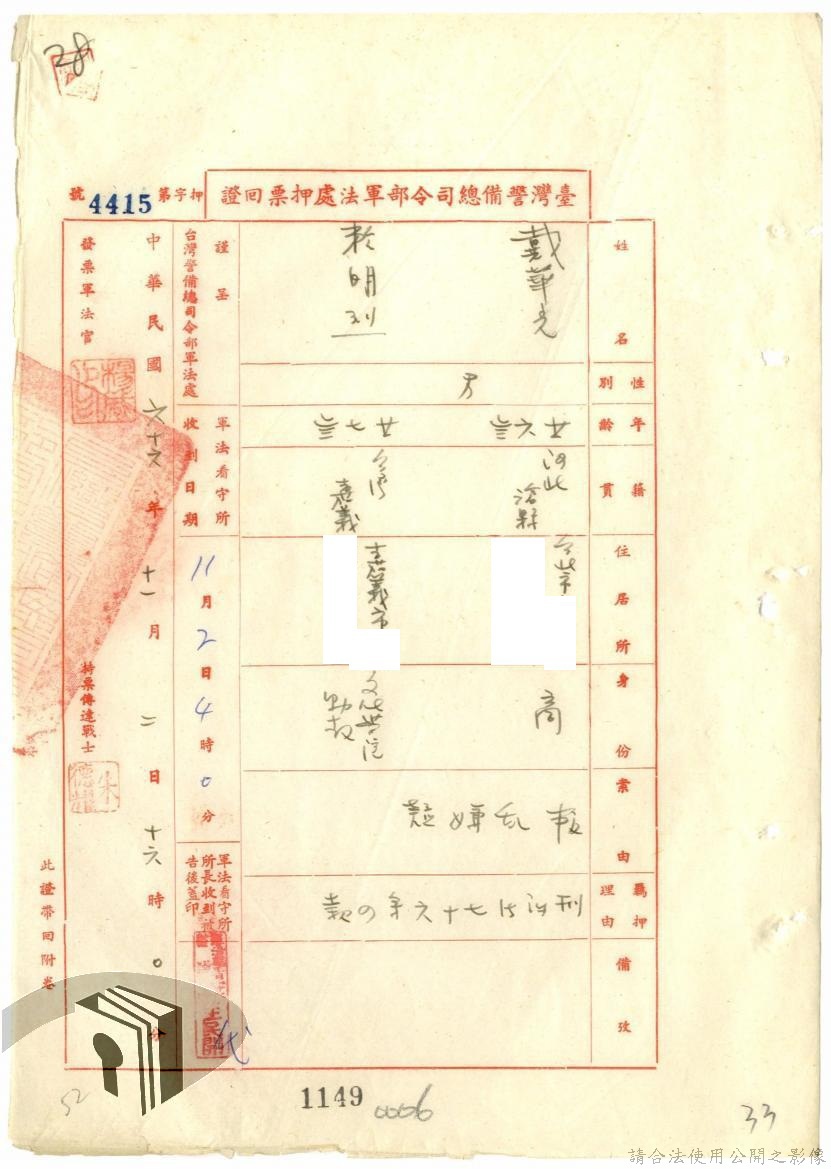 28
臺灣警備總司令部軍法處押票回證
押字第4415號
姓名
戴華光
賴明烈
性別
男
年齡
廿六歲
廿七歲
籍貫
河北滄縣
台灣嘉義
住居所
台北市
嘉義市
身份
商
文化學院助教
案由
叛乱嫌疑
羈押理由
刑訴法七十六条四款
備攷
謹呈
台灣警備總司令部軍法處
軍法看守所收到日期
11月2日4時0分
軍法看守所所長收到被告後蓋印
代
中華民國六十六年十一月二日十六時0分
發票軍法官
持票傳達戰士
朱德
此證帶回附卷
52
1149
0006
33
請合法使用公開之影像